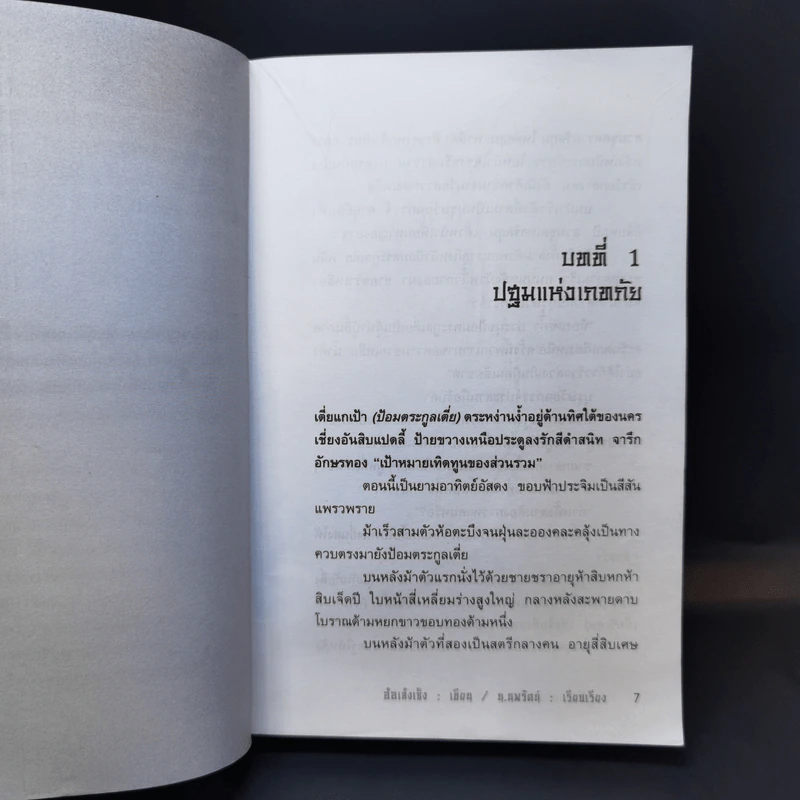 บทที่ 1
ปฐมแห่งเภทภัย
เตี่ยแกเป้า (ป้อมตระกูลเตี่ย) ตระหง่านง้ำอยู่ด้านทิศใต้ของนคร
เชี่ยงอันสิบแปดลี้ ป้ายขวางเหนือประตูลงรักสีดำสนิท จารึก
อักษรทอง “เป้าหมายเทิดทูนของส่วนรวม”
ตอนนี้เป็นยามอาทิตย์อัสดง ขอบฟ้าประจิมเป็นสีสัน
แพรวพราย
ม้าเร็วสามตัวห้อตะบึงจนฝุ่นละอองคละคลุ้งเป็นทาง
ควบตรงมายังป้อมตระกูลเตี่ย
บนหลังม้าตัวแรกนั่งไว้ด้วยชายชราอายุห้าสิบหกห้า
สิบเจ็ดปี ใบหน้าสี่เหลี่ยมร่างสูงใหญ่ กลางหลังสะพายดาบ
โบราณด้ามหยกขาวขอบทองด้ามหนึ่ง
บนหลังม้าตัวที่สองเป็นสตรีกลางคน อายุสี่สิบเศษ
เขียน / น.นพรัตน์ : เรียบเรียง 7